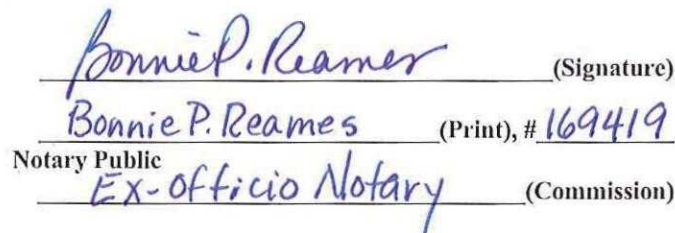 Bonnie P. Reames (Signature)
Bonnie P. Reames (Print), # 169419
Notary Public
Ex-Officio Notary (Commission)